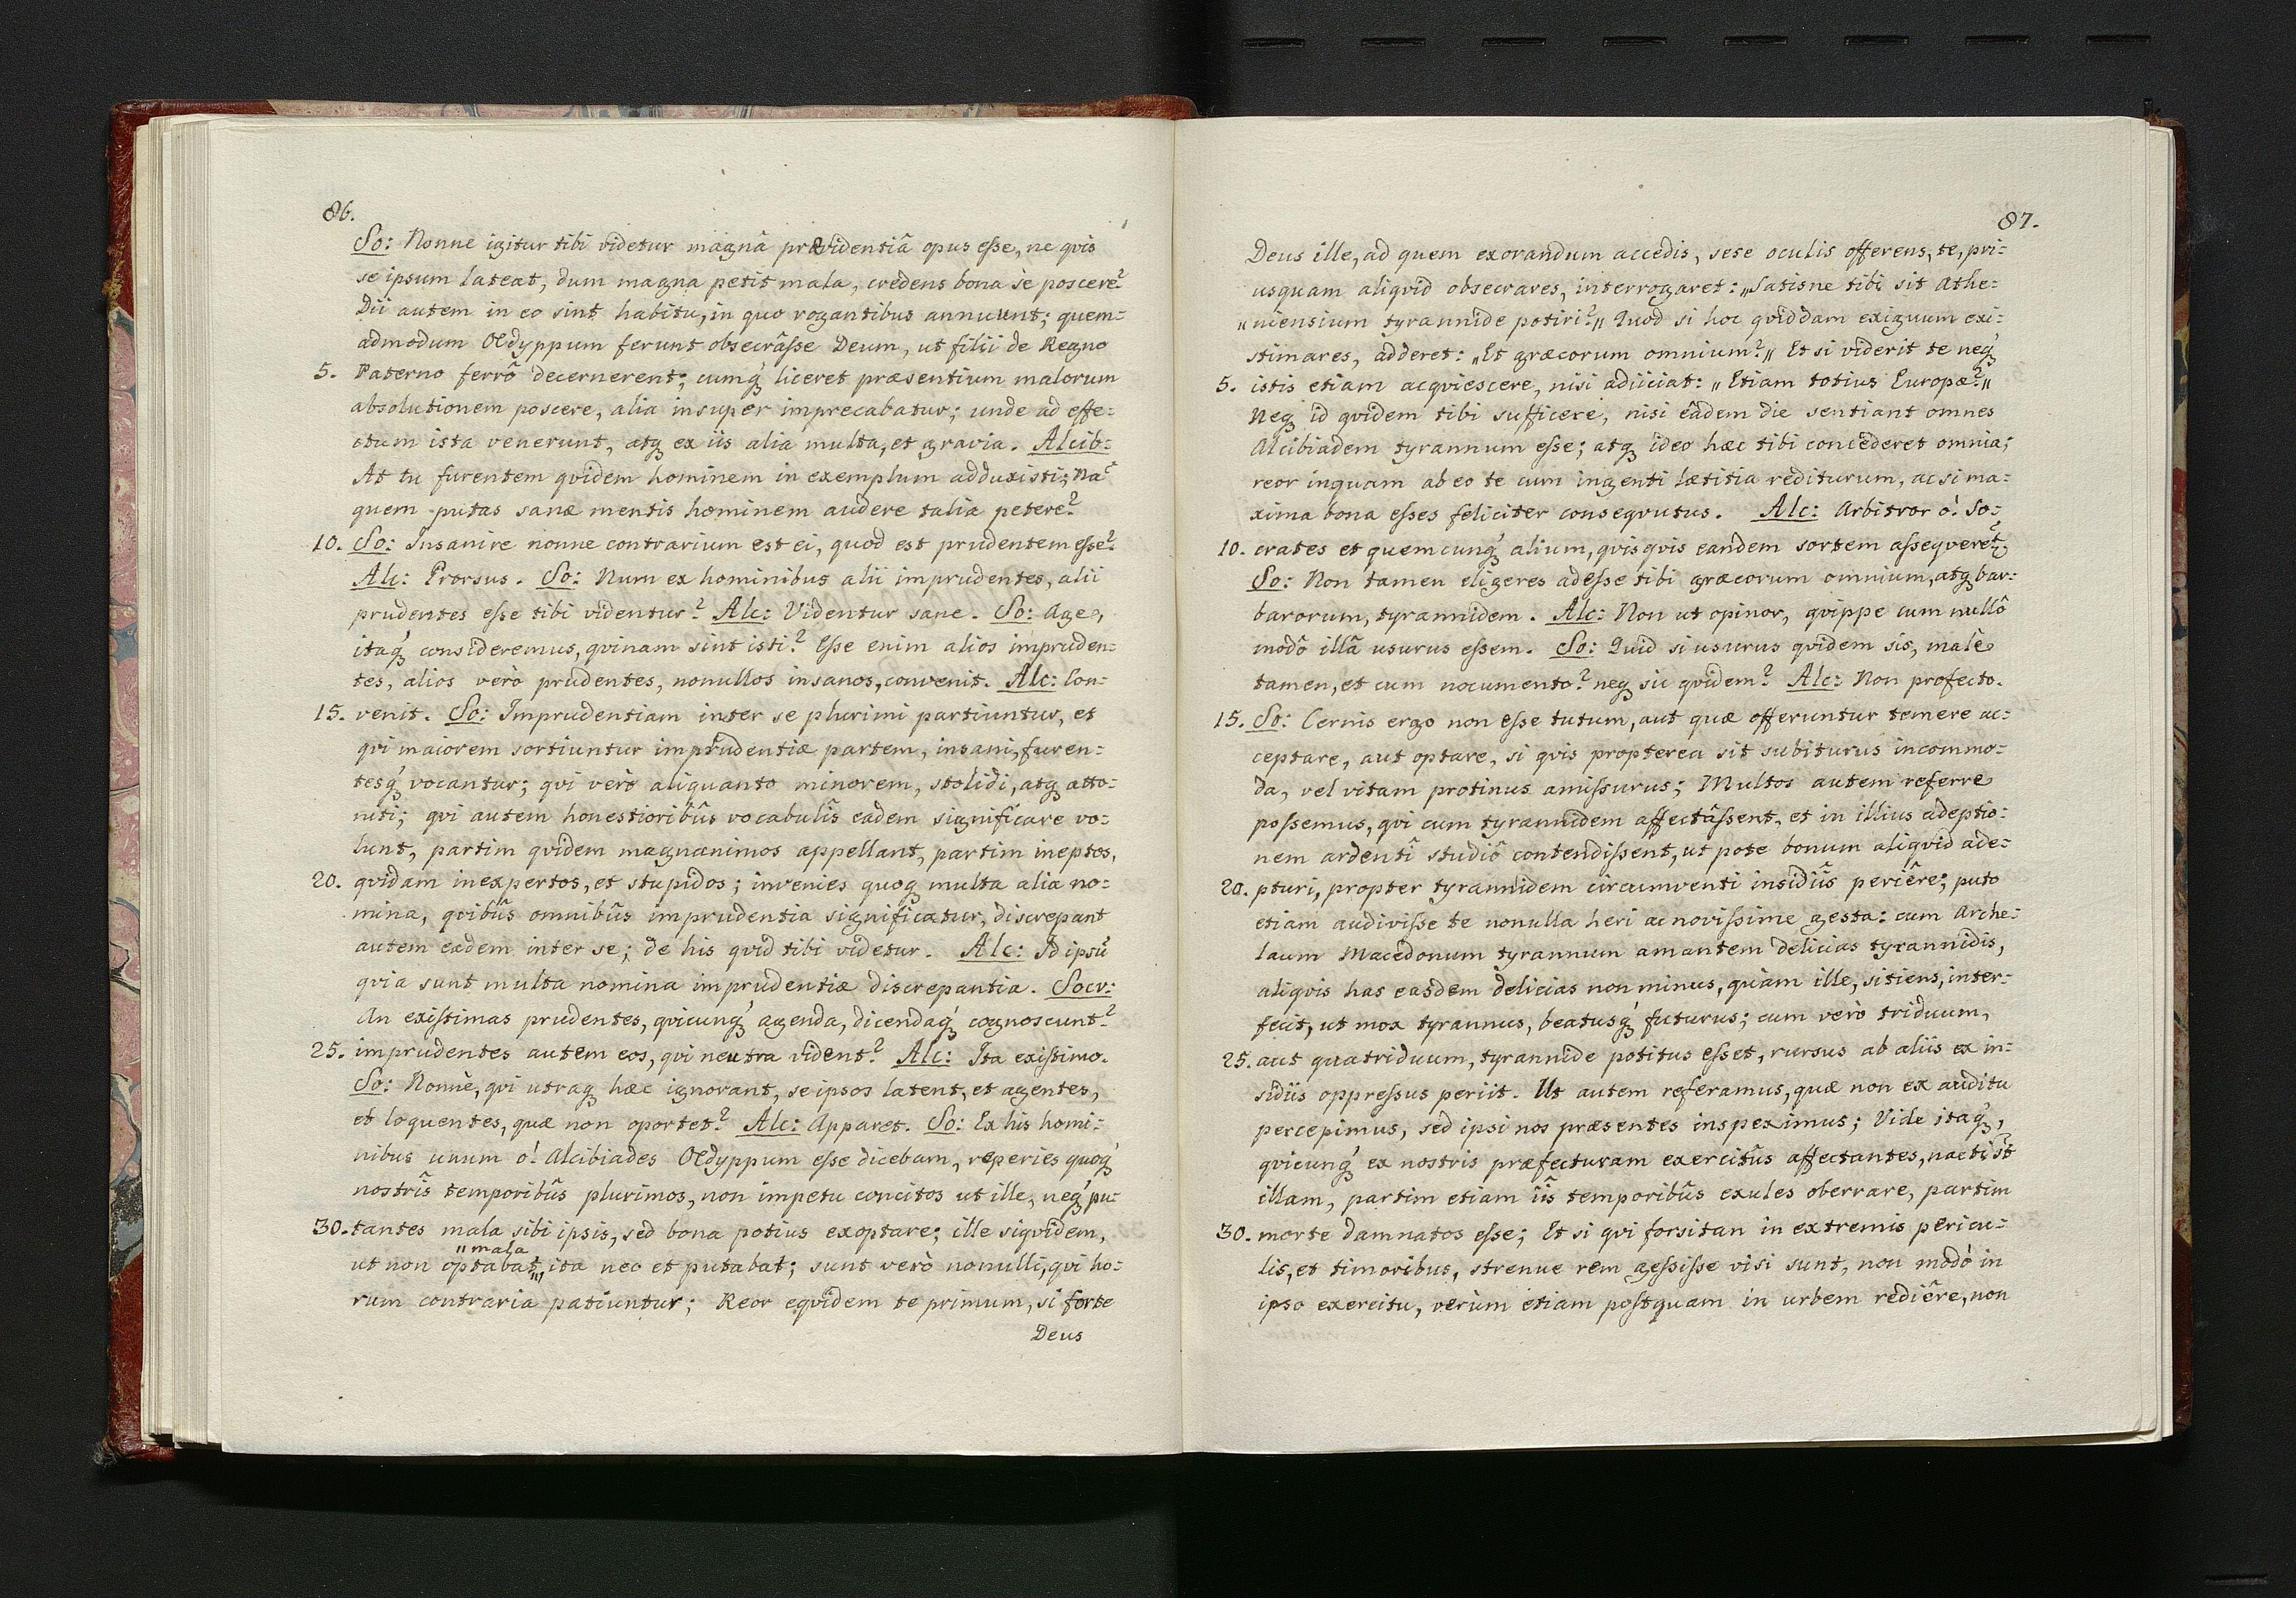 86.
So: Nonne igitur tibi videtur magnâ prævidentiâ opus esse, ne qvis
se ipsum lateat, dum magna petit mala, credens bona sè poscere?
Dii autem in eo sint habitu, in quo rogantibus annuunt; quem=
admodum Oedyppum ferunt obsecrâsse Deum, ut filii de Regno
5. Paterno ferrô decernerent; cumq́ liceret præsentium malorum
absolutionem poscere, alia insuper imprecabatur; unde ad effe=
ctum ista venerunt, atq ex iis alia multa, et gravia. Alcib:
At tu furentem qvidem hominem in exemplum adduxisti; Nã
quem putas sanæ mentis hominem audere talia petere?
10. So: Insanire nonne contrarium est ei, quod est prudentem esse?
Alc: Prorsus. So: Num ex hominibus alii imprudentes, alii
prudentes esse tibi videntur? Alc: Videntur sane. So: Age,
itaq́ consideremus, qvinam sint isti? Esse enim alios impruden=
tes, alios verò prudentes, nonullos insanos, convenit. Alc: Con=
15. venit. So: Imprudentiam inter se plurimi partiuntur, et
qvi maiorem sortiuntur imprudentiæ partem, insani, furen=
tesq́ vocantur; qvi verò aliquanto minorem, stolidi, atq atto=
niti; qvi autem honestioribûs vocabulîs eadem significare vo=
lunt, partim qvidem magnanimos appellant, partim ineptos,
20. qvidam inexpertos, et stupidos; invenies quoq multa alia no=
mina, qvibûs omnibûs imprudentia significatur, discrepant
autem eadem inter se; de his qvid tibi videtur. Alc: Id ipsũ
qvia sunt multa nomina imprudentiæ discrepantia. Socr:
An existimas prudentes, qvicunq́ agenda, dicendaq́ cognoscunt?
25. imprudentes autem eos, qvi neutra vident? Alc: Ita existimo.
So: Nonne, qvi utraq hæc ignorant, se ipsos latent, et agentes,
et loquentes, quæ non oportet? Alc: Apparet. So: Ex his homi=
nibus unum ó! Alcibiades Oedyppum esse dicebam, reperies quoq́
nostrîs temporibûs plurimos, non impetu concitos ut ille, neq́ pu=
30. tantes mala sibi ipsis, sed bona potius exoptare; ille siqvidem,
„mala
ut non optabat„, ita nec et putabat; sunt verò nonulli, qvi ho=
rum contraria patiuntur; Reor eqvidem te primum, si forte
Deus
87.
Deus ille, ad quem exorandum accedis, sese oculis offerens, te, pri=
usquam aliqvid obsecrares, interrogaret: „Satisne tibi sit Athe=
„niensium tyrannide potiri?„ Quod si hoc qviddam exiguum exi=
stimares, adderet: „Et græcorum omnium?„ Et si viderit te neq́
5. istis etiam acqviescere, nisi adiiciat: „Etiam totius Europæ?„
Neq́ id qvidem tibi sufficere, nisi eâdem die sentiant omnes
Alcibiadem tyrannum esse; atq ideo hæc tibi concederet omnia;
reor inquam ab eo te cum ingenti lætitia rediturum, ac si ma=
xima bona esses feliciter conseqvutus. Alc: Arbitror ó! So=
10. crates et quemcunq́ alium, qvisqvis eandem sortem asseqveret̃,
So: Non tamen eligeres adesse tibi græcorum omnium, atq bar=
barorum, tyrannidem. Alc: Non ut opinor, qvippe cum nullô
modô illâ usurus essem. So: Quid si usurus qvidem sis, malè
tamen, et cum nocumento? neq sic qvidem? Alc: Non profecto.
15. So: Cernis ergo non esse tutum, aut quæ offeruntur temere ac=
ceptare, aut optare, si qvis propterea sit subiturus incommo=
da, vel vitam protinus amissurus; Multos autem referre
possemus, qvi cum tyrannidem affectâssent, et in illius adeptio=
nem ardentî studiô contendissent, ut pote bonum aliqvid ade=
20. pturi, propter tyrannidem circumventi insidiîs periêre; puto
etiam audivisse te nonulla heri ac novissime gesta: cum Arche=
laum Macedonum tyrannum amantem delicias tyrannidis,
aliqvis has easdem delicias non minus, quàm ille, sitiens, inter=
fecit, ut mox tyrannus, beatusq́ futurus; cum verò triduum,
25. aut quatriduum, tyrannide potitus esset, rursus ab aliis ex in=
sidiis oppressus periit. Ut autem referamus, quæ non ex auditu
percepimus, sed ipsi nos præsentes inspeximus; Vide itaq́,
qvicunq́ ex nostris præfecturam exercitûs affectantes, nacti st̃
illam, partim etiam iîs temporibûs exules oberrare, partim
30. morte damnatos esse; Et si qvi forsitan in extremis pericu=
lis, et timoribus, strenue rem gessisse visi sunt, non modò in
ipso exercitu, verùm etiam postquam in urbem rediêre, non